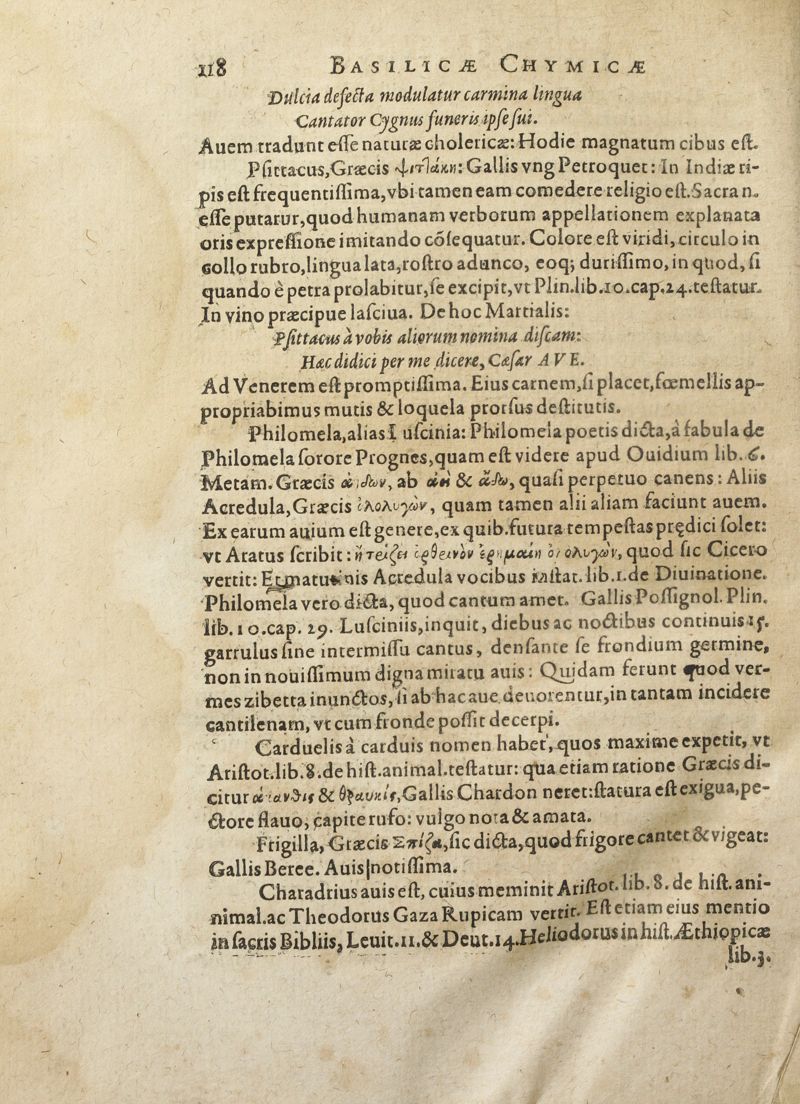 118 BASILICÆ CHYMICÆ
Dulcia defecta modulatur carmina lingua
Cantator Cygnus funeris ipse sui.
Auem tradunt esse naturæ cholericæ: Hodie magnatum cibus est.
Psittacus, Græcis ψιτλάκη: Gallis vng Petroquet: In Indiæ ri-
pis est frequentissima, vbi tamen eam comedere religio est. Sacra n.
esse putatur, quod humanam verborum appellationem explanata
oris expressione imitando cōsequatur. Colore est viridi, circulo in
collo rubro, lingua lata, rostro adunco, eoq; durissimo, in quod, si
quando è petra prolabitur, se excipit, vt Plin. lib. 10. cap. 24. testatur.
In vino præcipue lasciua. De hoc Martialis:
Psittacus à vobis aliorum nomina discam:
Hæc didici per me dicere, Cæsar AVE.
Ad Venerem est promptissima. Eius carnem, si placet, fœmellis ap-
propriabimus mutis & loquela prorsus destitutis.
Philomela, alias uscinia: Philomela poetis dicta, à fabula de
Philomela sorore Prognes, quam est videre apud Ouidium lib. 6.
Metam. Græcis ab & quasi perpetuo canens: Aliis
Acredula, Græcis ὀλολυγὼν, quam tamen alii aliam faciunt auem.
Ex earum auium est genere, ex quib. futura tempestas prędici solet:
vt Aratus scribit: quod sic Cicero
vertit: Acredula vocibus instat. lib. 1. de Diuinatione.
Philomela vero dicta, quod cantum amet. Gallis Possignol. Plin.
lib. 10. cap. 29. Lusciniis, inquit, diebus ac noctibus continuis 15.
garrulus sine intermissu cantus, densante se frondium germine,
non in nouissimum digna miratu auis: Quidam ferunt quod ver-
mes zibetta inunctos, si ab hac aue deuorentur, in tantam incidere
cantilenam, vt cum fronde possit decerpi.
Carduelis à carduis nomen habet, quos maxime expetit, vt
Aristot. lib. 8. de hist. animal. testatur: qua etiam ratione Græcis di-
citur & θραυκίς, Gallis Chardon neret: statura est exigua, pe-
ctore flauo, capite rufo: vulgo nota & amata.
Frigilla, Græcis Σπίζα, sic dicta, quod frigore cantet & vigeat:
Gallis Beree. Auis notissima.
Charadrius auis est, cuius meminit Aristot. lib. 8. de hist. ani-
nimal. ac Theodorus Gaza Rupicam vertit. Est etiam eius mentio
in sacris Bibliis, Leuit. 11. & Deut. 14. Heliodorus in hist. Æthiopicæ
lib. 3.